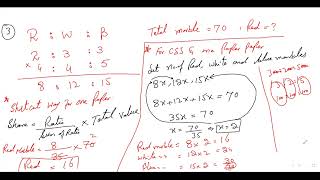 ③
R : W : B
2 : 3 : 3
× 4 : 4 : 5
8 : 12 : 15
* Shortcut way for one Paper
Share = Ratio / Sum of Ratio × Total value
Red Marble = 8/35 × 70 2
Red = 16
Total marble = 70 , Red = ?
* For CSS &
Let no of Red, White and blue marbles
8x, 12x, 15x
8x + 12x + 15x = 70
35x = 70
x = 70/35 ⇒ x = 2
Red marble = 8 x 2 = 16
White = 12 x 2 = 24
15 x 2 = 30